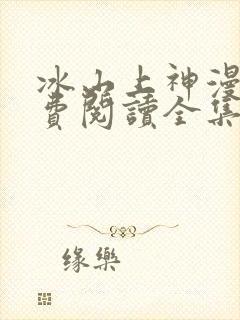 冰山上神漫
費閱讀全集
緣樂